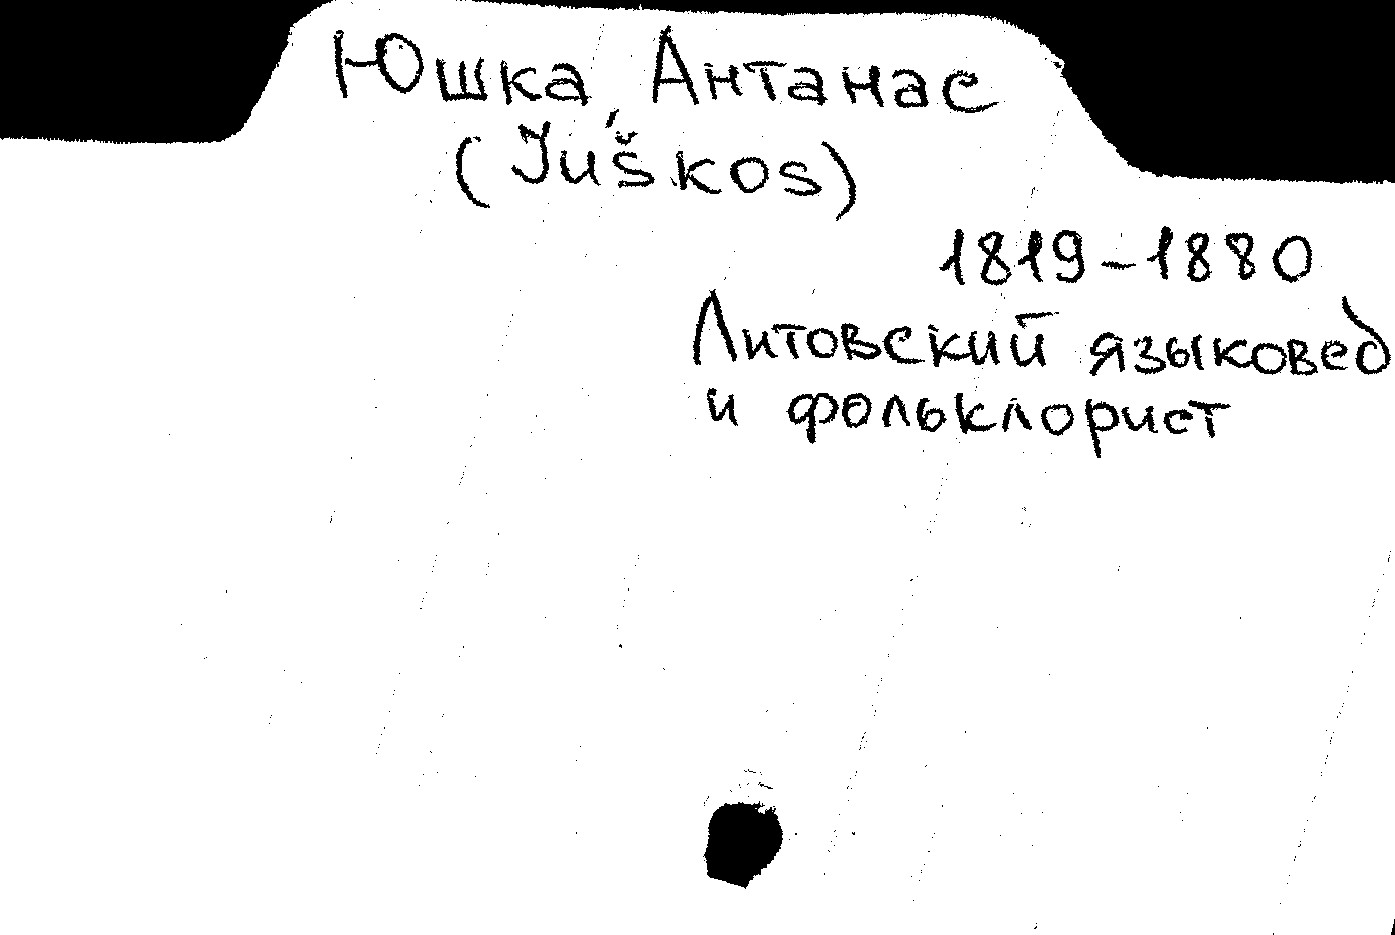 Юшка, Антанас
(Juškos)
1819-1880
Литовский языковед
и фольклорист